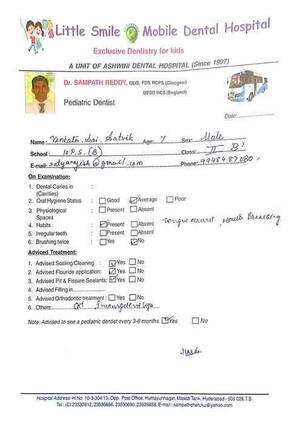 Little Smile Mobile Dental Hospital
Exclusive Dentistry for kids
A UNIT OF ASHWINI DENTAL HOSPITAL (Since 1997)
Dr. SAMPATH REDDY, BDS, FDS RCPS (Glasgow)
MFDS RCS (England)
Pediatric Dentist
Date:
Name: Venkata Sai Satvik Age: 7 Sex: Male
School: H.P.S. (B) Class: II B
E-mail: @gmail.com Phone: 9948487080
On Examination:
1. Dental Caries in (Cavities) :
2. Oral Hygiene Status : Good Average Poor
3. Physiological Spaces : Present Absent
4. Habits : Present Absent tongue thrust, Mouth Breathing
5. Irregular teeth : Present Absent
6. Brushing twice : Yes No
Advised Treatment:
1. Advised Scaling/Cleaning : Yes No
2. Advised Fluoride application: Yes No
3. Advised Pit & Fissure Sealants: Yes No
4. Advised Filling in
5. Advised Orthodontic treatment : Yes No
6. Others:
Note: Advised to see a pediatric dentist every 3-6 months Yes No
Hospital Address: H.No. 10-3-304/13, Opp. Post Office, Humayunnagar, Masab Tank, Hyderabad - 500 028. T.S.